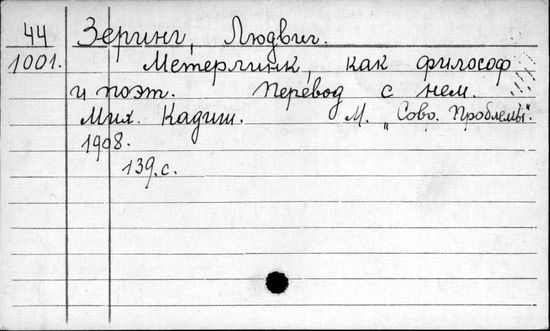 44 Зеринг, Людвиг.
1001. Метерлинк, как философ
и поэт. Перевод с нем.
Мих. Кадиш. М. „Совр. Проблемы".
1908.
139.с.